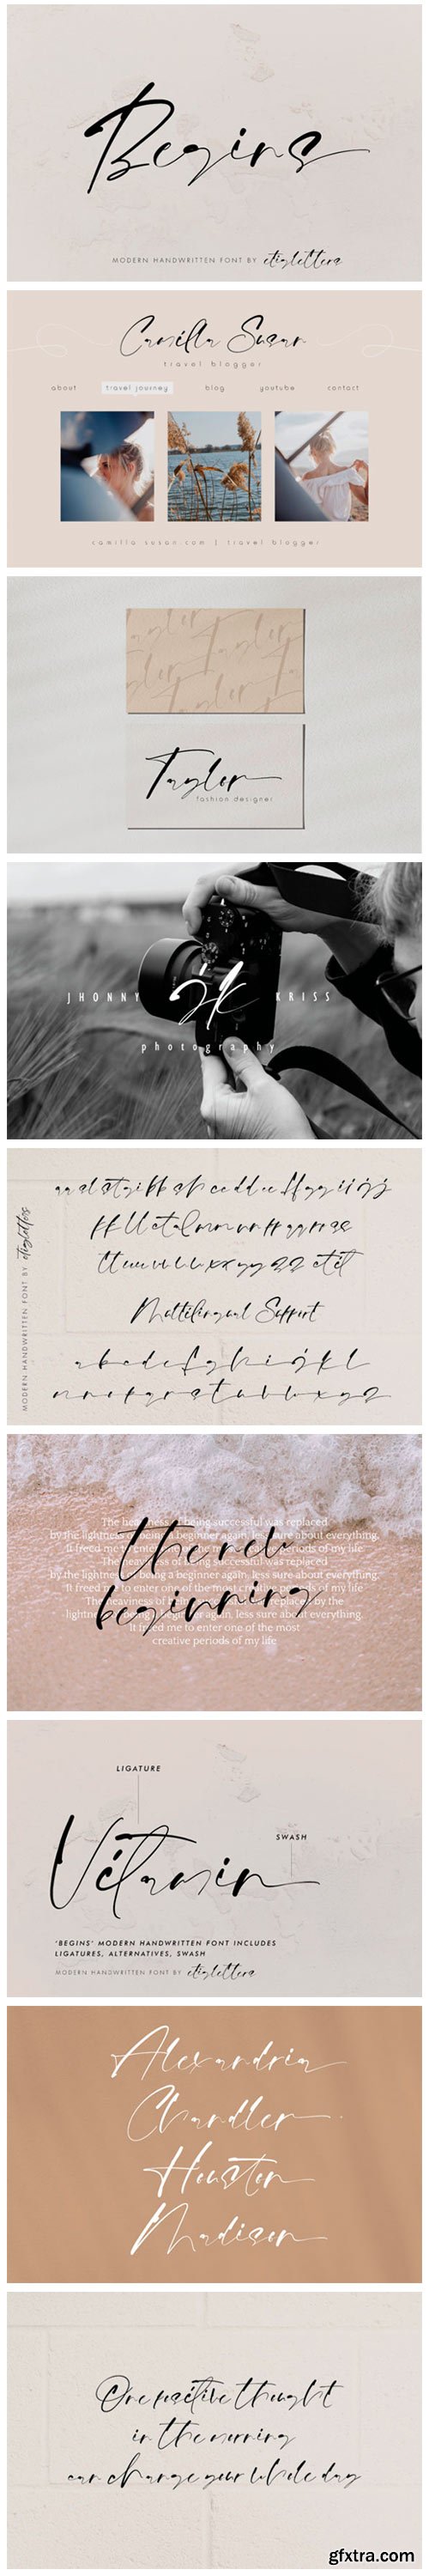 Begins
MODERN HANDWRITTEN FONT BY etigletters
Camilla Susan
travel blogger
about travel journey blog youtube contact
camilla susan com | travel blogger
Taylor
fashion designer
JHONNY jk KRISS
photography
MODERN HANDWRITTEN FONT BY etigletters
Multilingual Support
The heaviness of being successful was replaced
by the lightness of being a beginner again, less sure about everything.
It freed me to enter one of the most creative periods of my life
The heaviness of being successful was replaced
by the lightness of being a beginner again, less sure about everything.
It freed me to enter one of the most creative periods of my life
The heaviness of being replaced by the
lightness of being a beginner again, less sure about everything.
It freed me to enter one of the most
creative periods of my life
the new
beginning
LIGATURE
SWASH
Vitamin
"BEGINS" MODERN HANDWRITTEN FONT INCLUDES
LIGATURES, ALTERNATIVES, SWASH
MODERN HANDWRITTEN FONT BY etigletters
Alexandria
Chandler
Houston
Madison
One positive thought
in the morning
can change your whole day
gfxtra.com